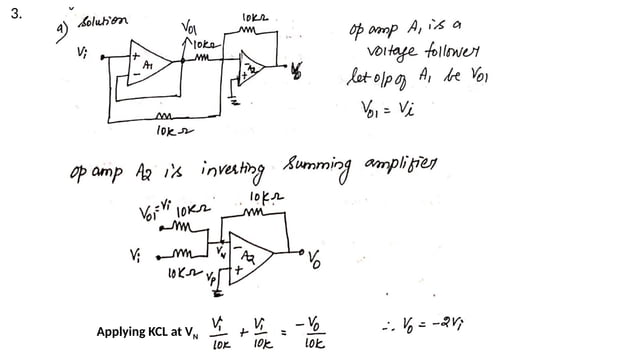 3.
a) Solution
Vi
V01
10kΩ
10kΩ
+
A1
-
-
A2
+
V0
10kΩ
op amp A1 is a
voltage follower
let o/p of A1 be V01
V01 = Vi
op amp A2 is inverting Summing amplifier
V01=Vi 10kΩ
10kΩ
Vi
VN
-
A2
+
V0
10kΩ
Vp
Applying KCL at VN Vi/10k + Vi/10k = -V0/10k ∴ V0 = -2Vi